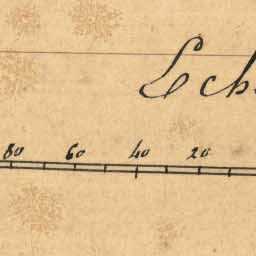 Eche
80 60 40 20